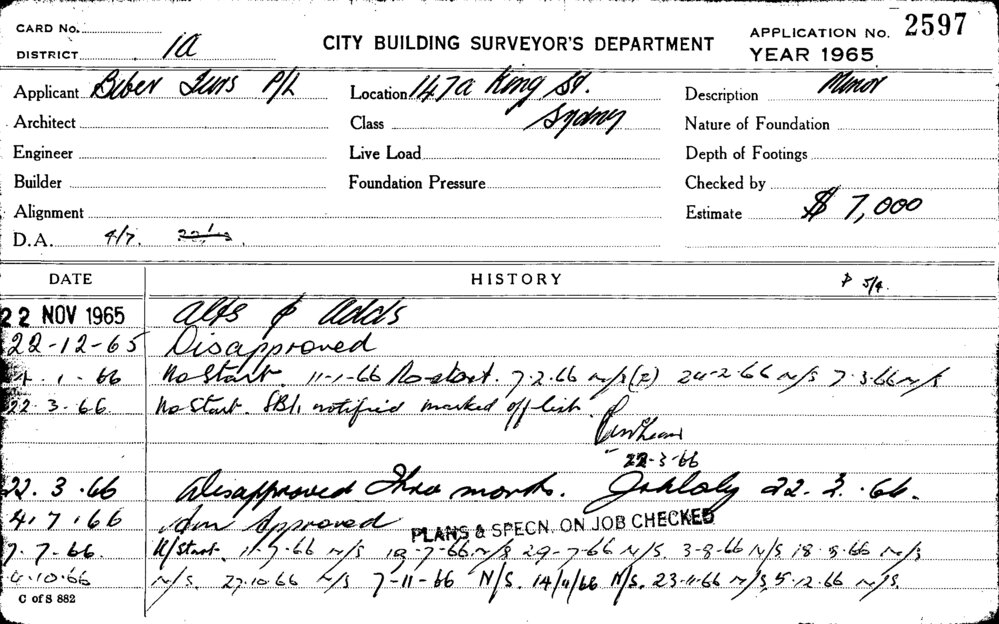 CARD No.
DISTRICT 1a
CITY BUILDING SURVEYOR'S DEPARTMENT
APPLICATION No. 2597
YEAR 1965
Applicant Biber Furs P/L
Location 147a King St.
Sydney
Description Minor
Architect
Class
Nature of Foundation
Engineer
Live Load
Depth of Footings
Builder
Foundation Pressure
Checked by
Alignment
Estimate $ 7,000
D.A. 4/7.
DATE
HISTORY
P 5/4.
22 NOV 1965 Alts & Adds
22-12-65 Disapproved
1-66 No Start. 11-1-66 No start. 7-2-66 n/s (E) 24-2-66 n/s 7-3-66 n/s
22.3.66. No Start. SBI, notified marked off list.
22-3-66
22.3.66 Disapproved Three months. 22.3.66.
4.7.66 Am Approved
PLANS & SPECN. ON JOB CHECKED
7.7-66. N/Start. 11-7-66 n/s 19-7-66 n/s 29-7-66 N/S. 3-8-66 N/S 18.8.66 n/s
4.10.66 n/s. 27.10.66 n/s 7-11-66 N/S. 14/11/66 N/S. 23-11-66 n/s, 5.12.66 n/s.
C of S 882